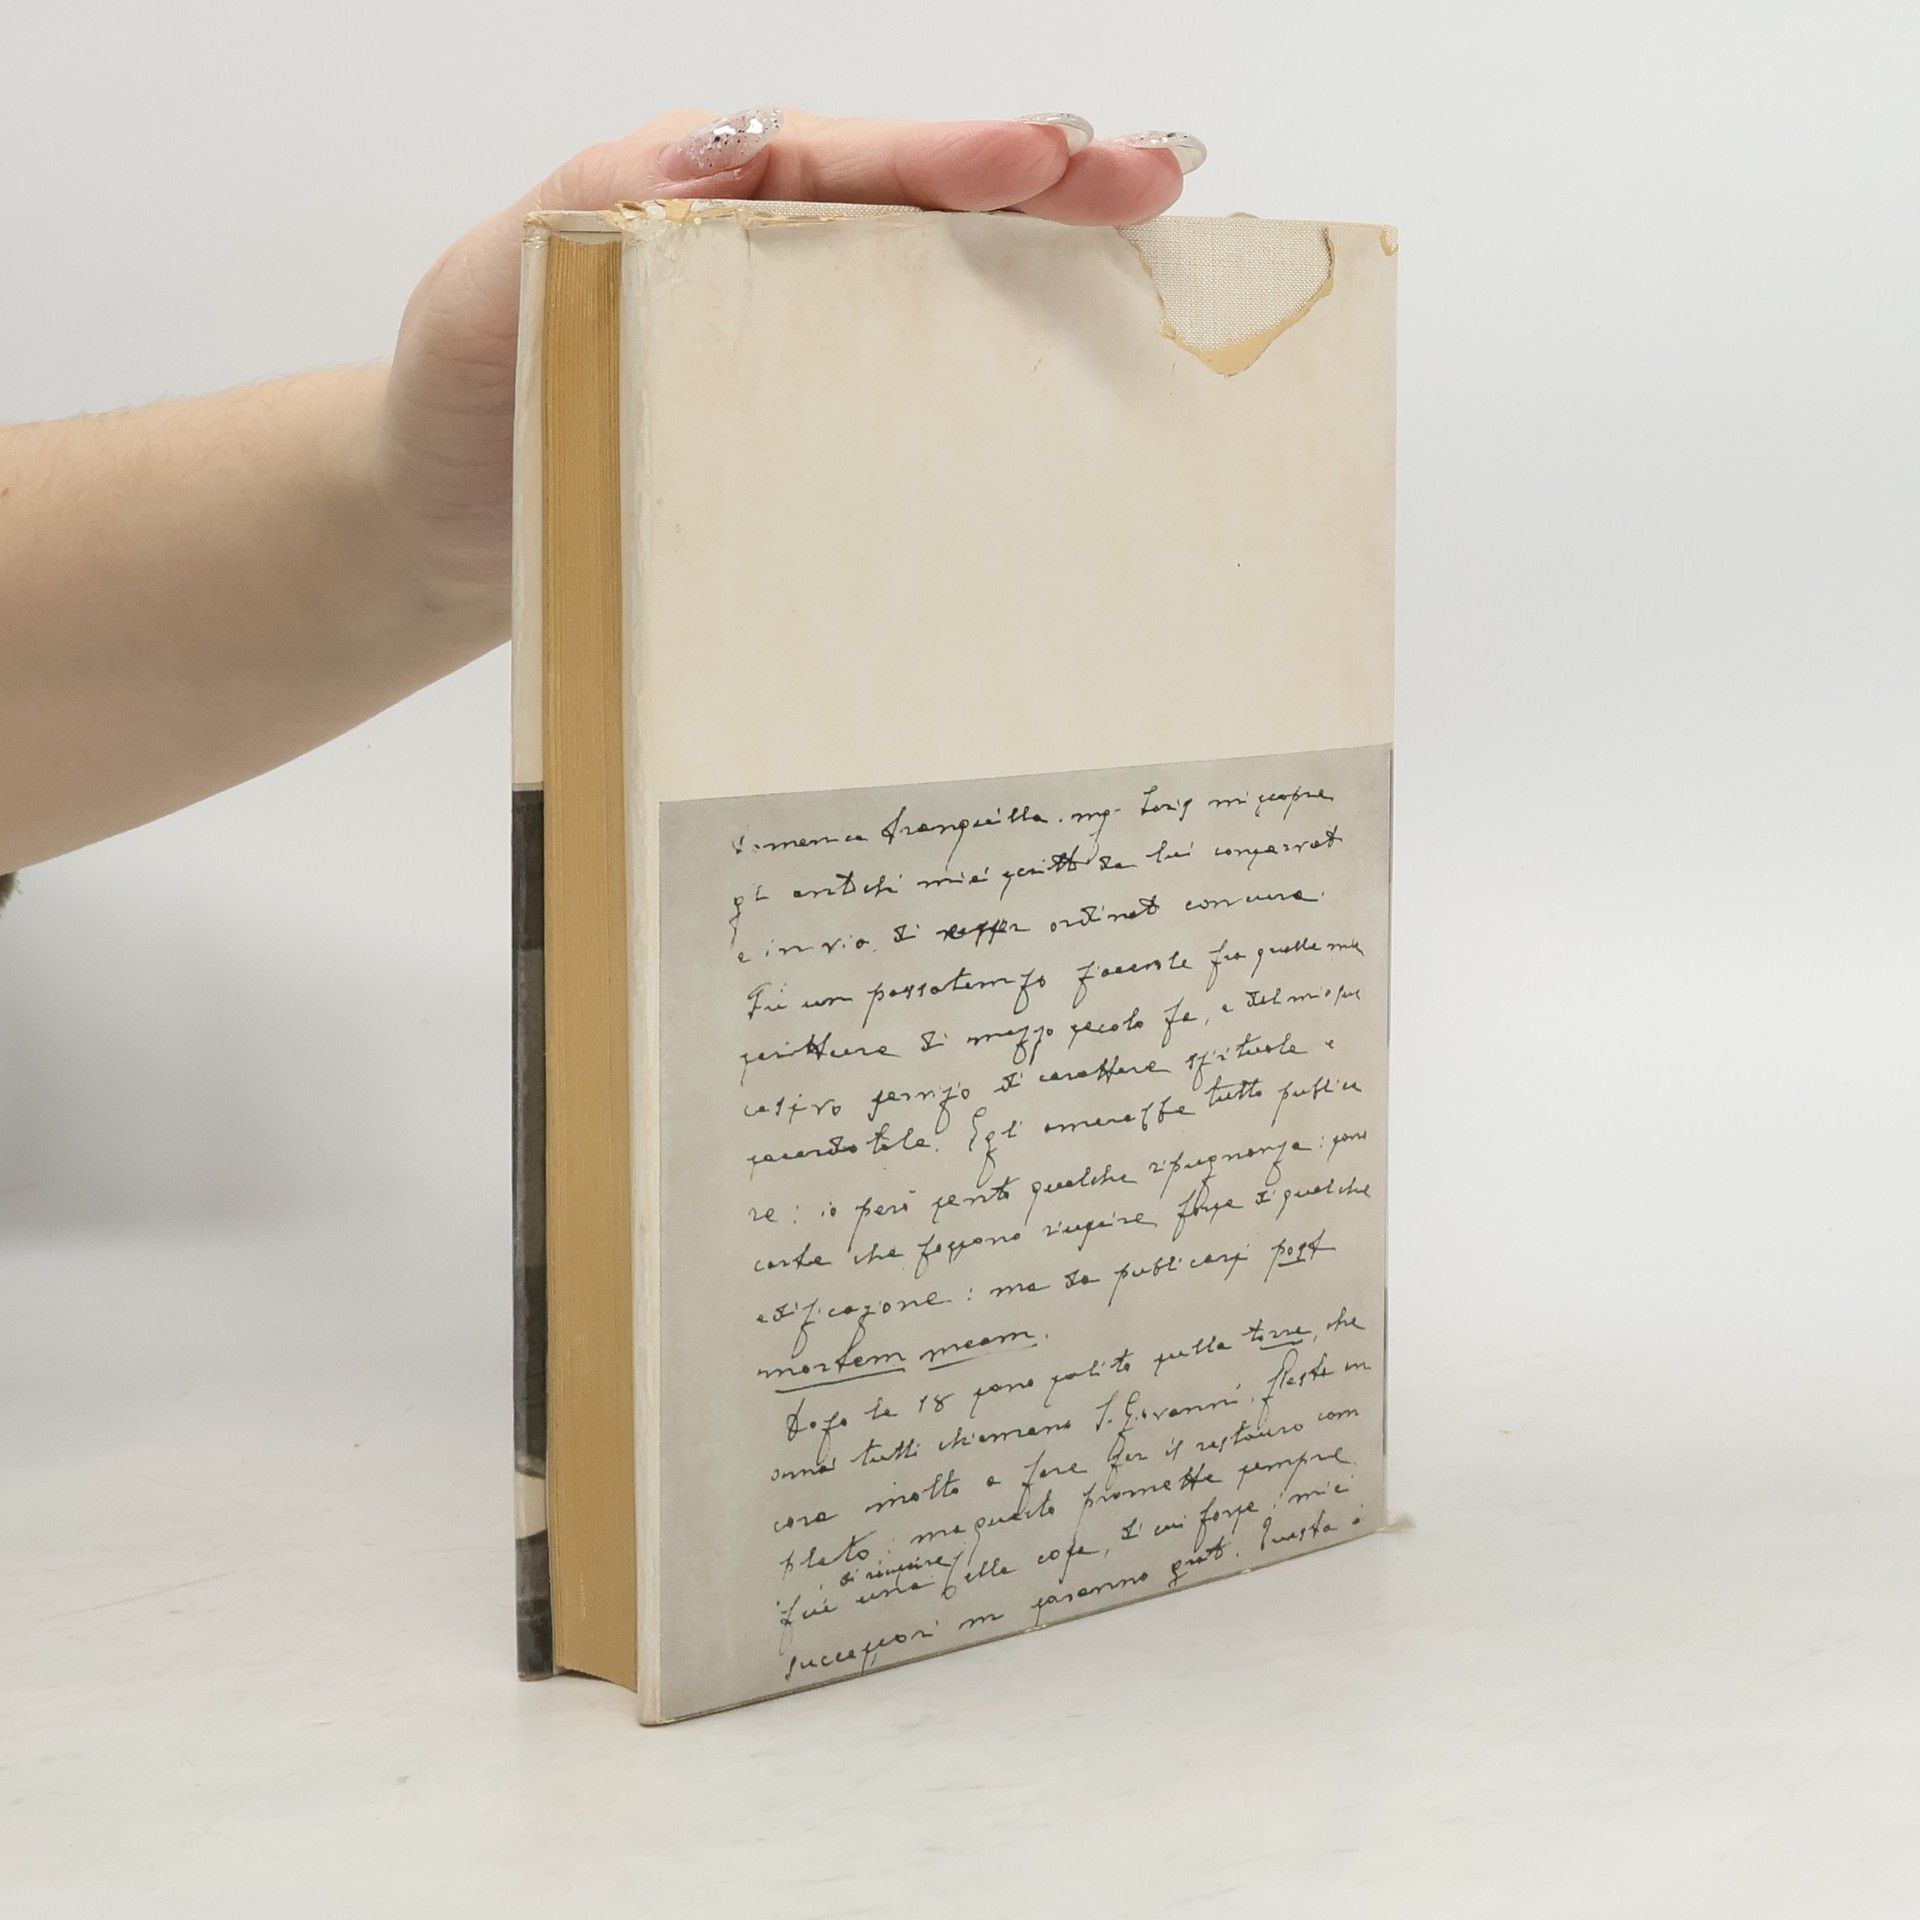 Domenica tranquilla. mgr. Loris mi scopre
gli antichi miei scritti da lui conservati
e in via di esser ordinati con cura.
Fu un passatempo piacente fra quelle mie
scritture di mezzo secolo fa, e del mio suc
cesivo tempo di carattere spirituale e
sacerdotale. Egli amerebbe tutto publica
re: io però sento qualche ripugnanza: sono
carte che possono riuscire forse di qualche
edificazione: ma da publicarsi post
mortem meam.
Dopo le 18 sono salito sulla torre, che
ormai tutti chiamano S. Giovanni. Resta an
cora molto a fare per il restauro com
pleto: ma questo promette sempre
di riuscire
una bella cosa, di cui forse i miei
successori mi saranno grati. Questa è